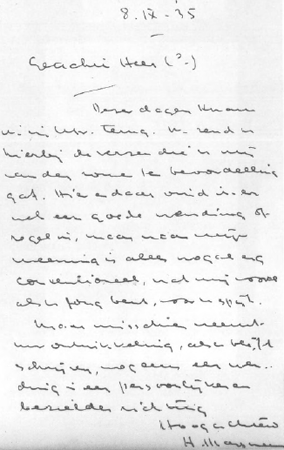 8.IX.'35
Geachte Heer (?.)
Deze dagen kwam
ik in Utr. terug. Ik zend u
hierbij de verzen die u mij
van den zomer ter beoordeeling
gaf. Hier en daar vind ik er
wel een goede wending of
regel in, maar naar mijn
meening is alles nogal erg
conventioneel, wat mij vooral
als u jong bent, voor u spijt.
Maar misschien neemt
uw ontwikkeling, als u blijft
schrijven, nog eens een wen-
ding in een persoonlijker en
bezielder richting
Hoogachtend
H. Marsman